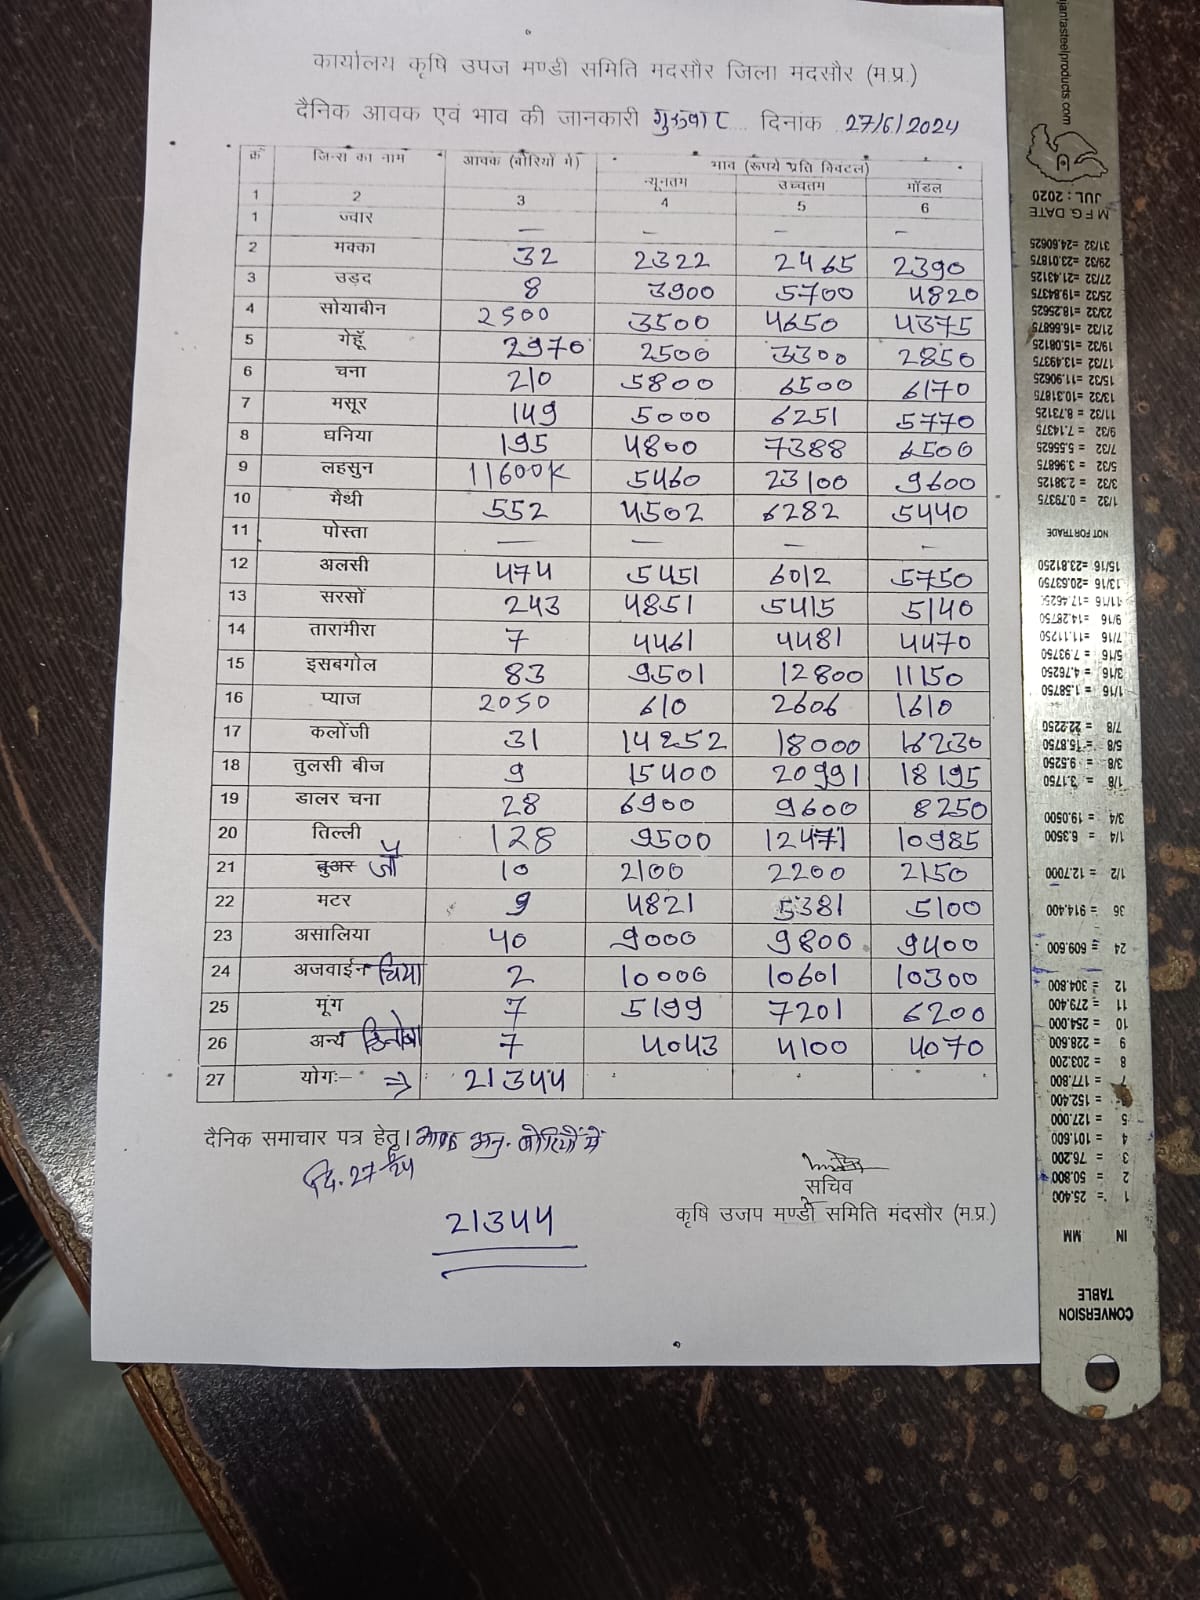 कार्यालय कृषि उपज मण्डी समिति मदसौर जिला मदसौर (म.प्र.)
दैनिक आवक एवं भाव की जानकारी गुरूवार दिनांक 27/6/2024
क्रं जिन्स का नाम आवक (बोरियों में) भाव (रूपये प्रति क्विटल)
न्यूनतम उच्चतम मॉडल
1 2 3 4 5 6
1 ज्वार — — — —
2 मक्का 32 2322 2465 2390
3 उड़द 8 3900 5700 4820
4 सोयाबीन 2500 3500 4650 4375
5 गेहूँ 2970 2500 3300 2850
6 चना 210 5800 6500 6170
7 मसूर 149 5000 6251 5770
8 धनिया 195 4800 7388 6500
9 लहसुन 11600K 5460 23100 9600
10 मैथी 552 4502 6282 5440
11 पोस्ता — — — —
12 अलसी 474 5451 6012 5750
13 सरसों 243 4851 5415 5140
14 तारामीरा 7 4461 4481 4470
15 इसबगोल 83 9501 12800 11150
16 प्याज 2050 610 2606 1610
17 कलोंजी 31 14252 18000 16230
18 तुलसी बीज 9 15400 20991 18195
19 डालर चना 28 6900 9600 8250
20 तिल्ली 128 9500 12471 10985
21 जौ 10 2100 2200 2150
22 मटर 9 4821 5381 5100
23 असालिया 40 9000 9800 9400
24 अजवाईन चिया 2 10000 10601 10300
25 मूंग 7 5199 7201 6200
26 अन्य किनोवा 7 4043 4100 4070
27 योगः– ⇒ 21344
दैनिक समाचार पत्र हेतु। आवक अनु. बोरियों में
दि. 27/6/24
21344
सचिव
कृषि उजप मण्डी समिति मंदसौर (म.प्र.)
jantasteelproducts.com
JUL : 2020
MFG DATE
31/32 =24.60625
29/32 =23.01875
27/32 =21.43125
25/32 =19.84375
23/32 =18.25625
21/32 =16.66875
19/32 =15.08125
17/32 =13.49375
15/32 =11.90625
13/32 =10.31875
11/32 = 8.73125
9/32 = 7.14375
7/32 = 5.55625
5/32 = 3.96875
3/32 = 2.38125
1/32 = 0.79375
NOT FOR TRADE
15/16 =23.81250
13/16 =20.63750
11/16 =17.4625
9/16 =14.28750
7/16 =11.11250
5/16 = 7.93750
3/16 = 4.76250
1/16 = 1.58750
7/8 = 22.2250
5/8 = 15.8750
3/8 = 9.5250
1/8 = 3.1750
3/4 = 19.0500
1/4 = 6.3500
1/2 = 12.7000
36 = 914.400
24 = 609.600
12 = 304.800
11 = 279.400
10 = 254.000
9 = 228.600
8 = 203.200
7 = 177.800
= 152.400
5 = 127.000
4 = 101.600
3 = 76.200
2 = 50.800
1 = 25.400
IN MM
TABLE
CONVERSION